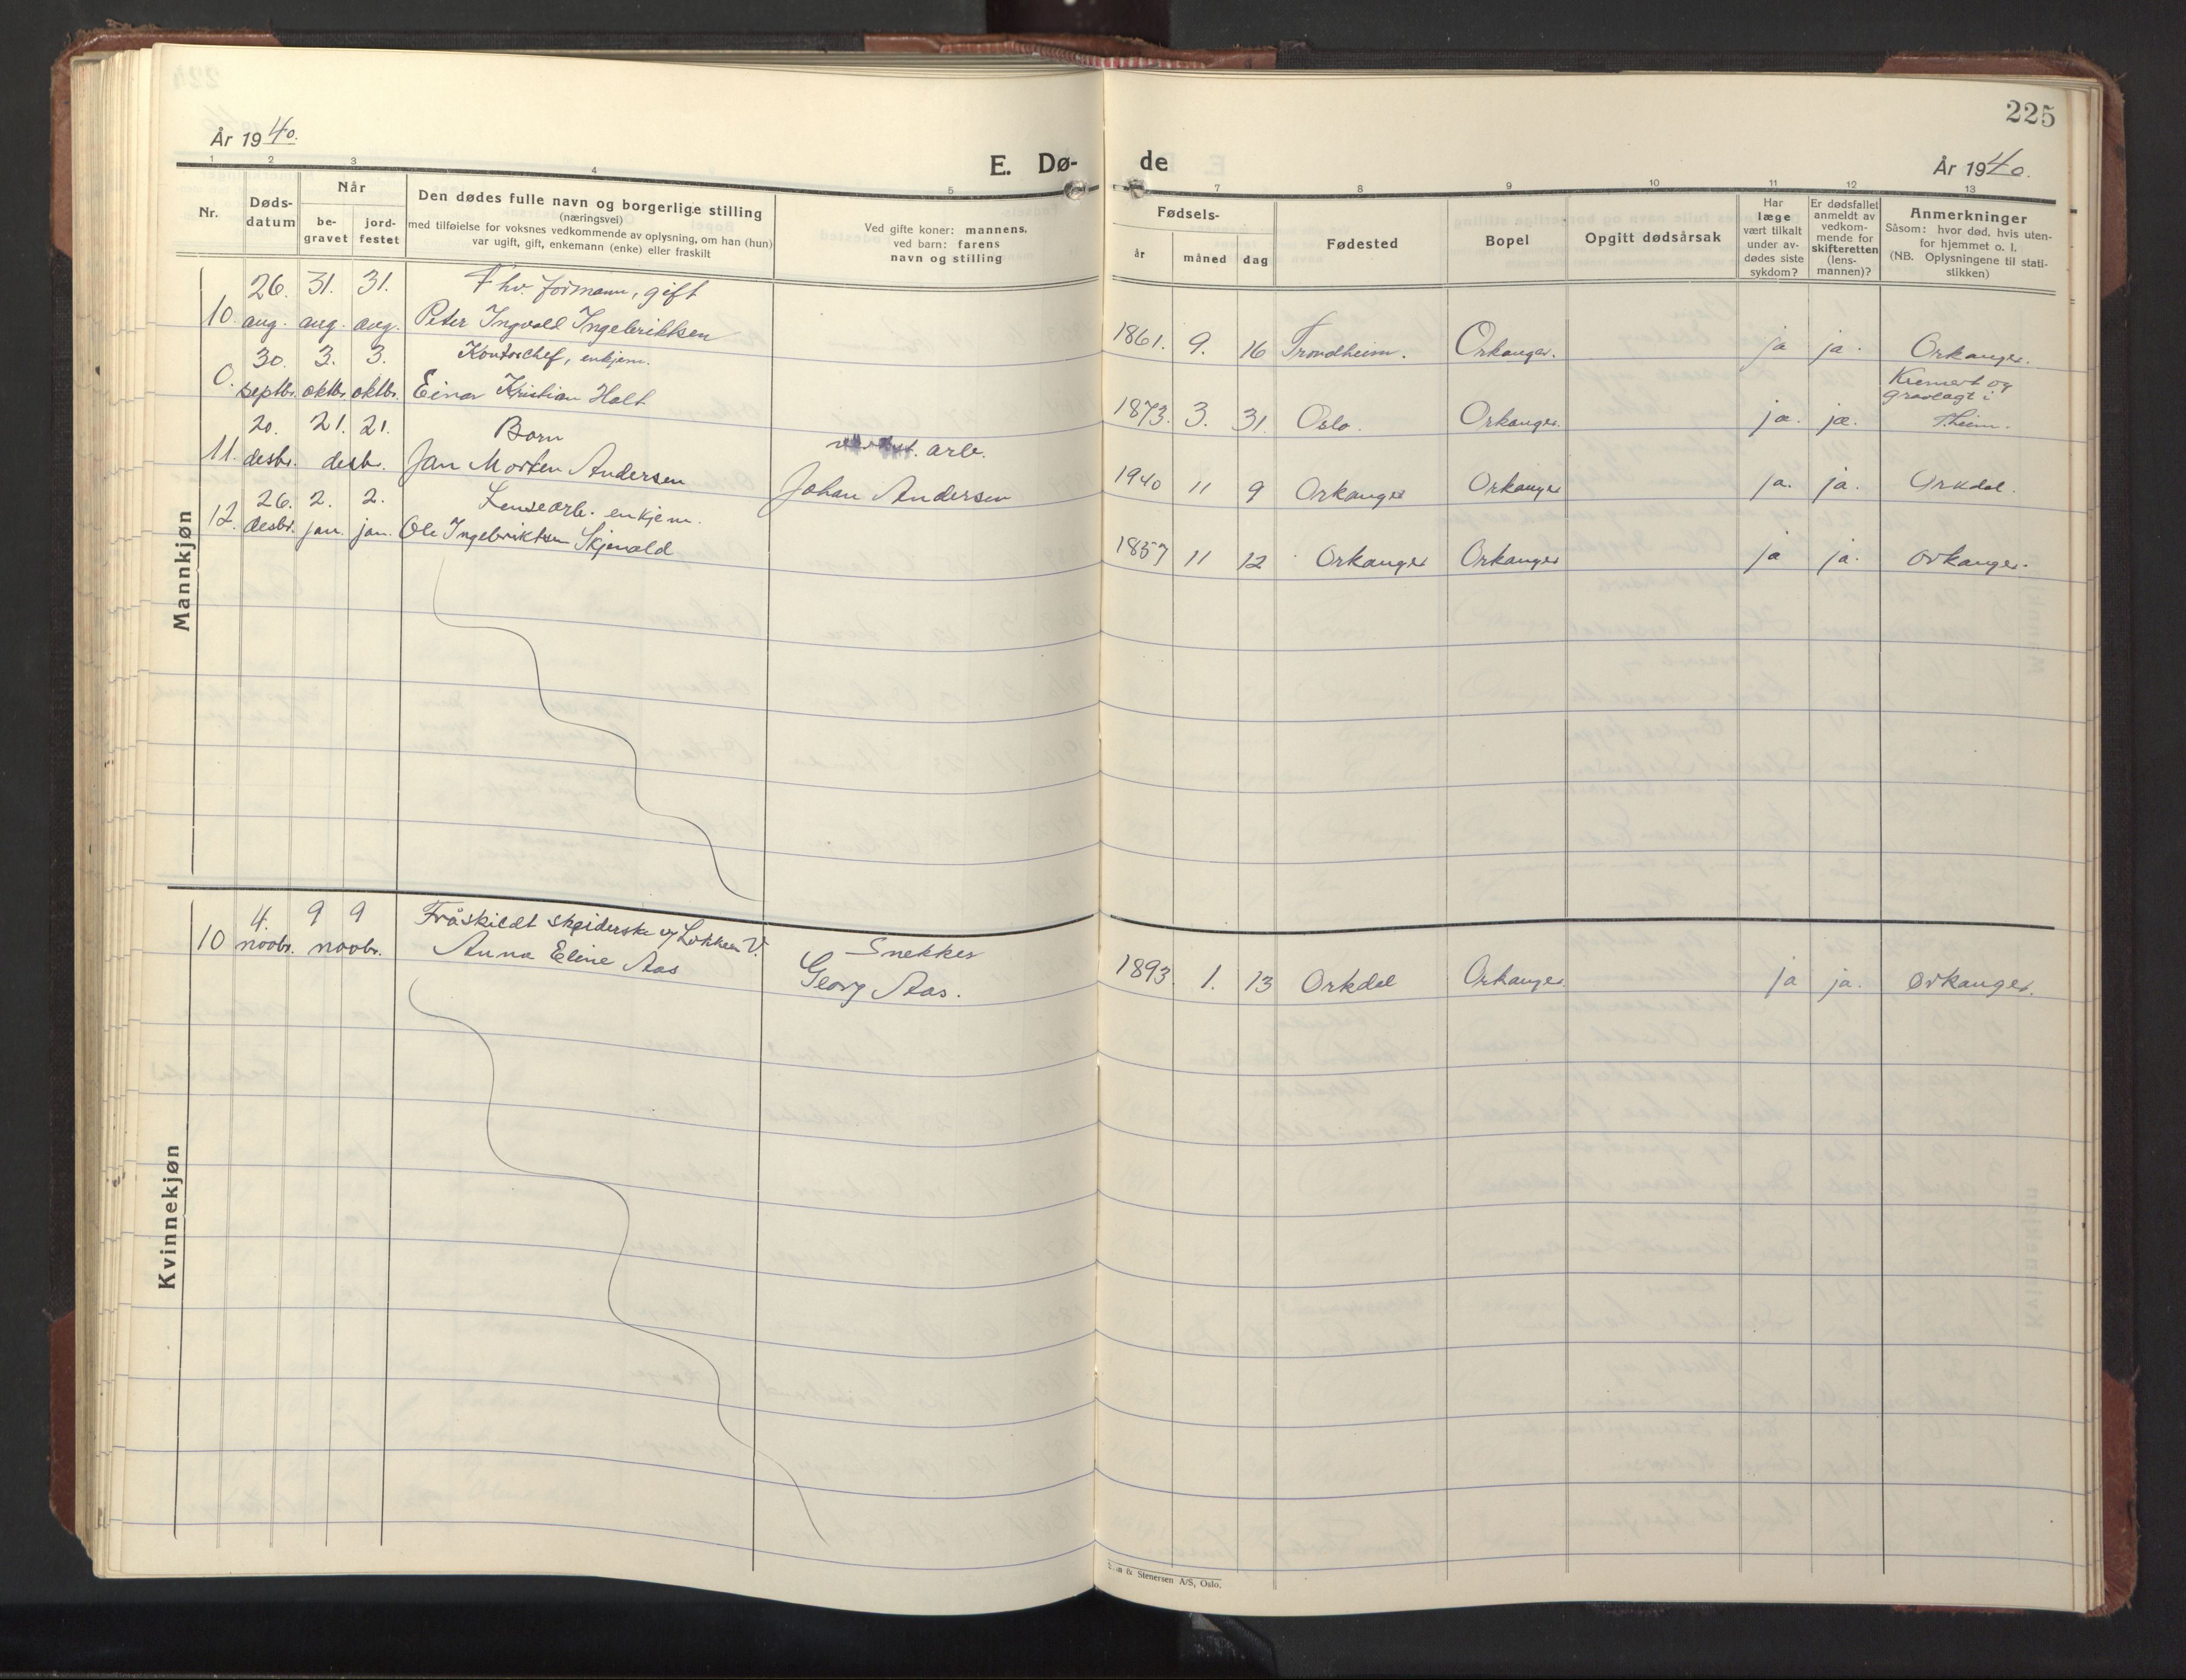 225
År 1940.
E. Dø- de
År 1940.
1 2 3 4 5 7 8 9 10 11 12 13
Nr.
Døds-
datum
Når
be-
gravet
jord-
festet
Den dødes fulle navn og borgerlige stilling
(næringsvei)
med tilføielse for voksnes vedkommende av oplysning, om han (hun)
var ugift, gift, enkemann (enke) eller fraskilt
Ved gifte koner: mannens,
ved barn: farens
navn og stilling
Fødsels-
år måned dag
Fødested
Bopel
Opgitt dødsårsak
Har
læge
vært tilkalt
under av-
dødes siste
sykdom?
Er dødsfallet
anmeldt av
vedkom-
mende for
skifteretten
(lens-
mannen)?
Anmerkninger
Såsom: hvor død, hvis uten-
for hjemmet o. l.
(NB. Oplysningene til stati-
stikken)
Mannkjøn
26. 31. 31. Fhv. formann, gift
10. aug. aug. aug. Peter Ingvald Ingebriktsen 1861. 9. 16 Trondheim. Orkanger. ja ja. Orkanger.
30. 3. 3. Kontorchef, enkjem. Kremert og
gravlagt i
0. septbr. oktbr. oktbr. Einar Kristian Holt 1873. 3. 31. Oslo. Orkanger. ja. ja. Theim.
20. 21. 21. Born arb.
11. desbr. desbr. Jan Morten Andersen Johan Andersen 1940 11 9 Orkanger Orkanger ja. ja. Orkdal.
26. 2. 2. Lensearb. enkjem.
12. desbr. jan. jan. Ole Ingebriktsen Skjenald 1857 11 12 Orkanger Orkanger ja ja. Orkanger.
Kvinnekjøn
4. 9 9 Fråskildt skreiderske og Løkken V. Snekker
10 novbr. novbr. Anna Eline Aas Georg Aas. 1893. 1. 13 Orkdal Orkanger. ja ja. Orkanger.
& Stenersen A/S, Oslo.